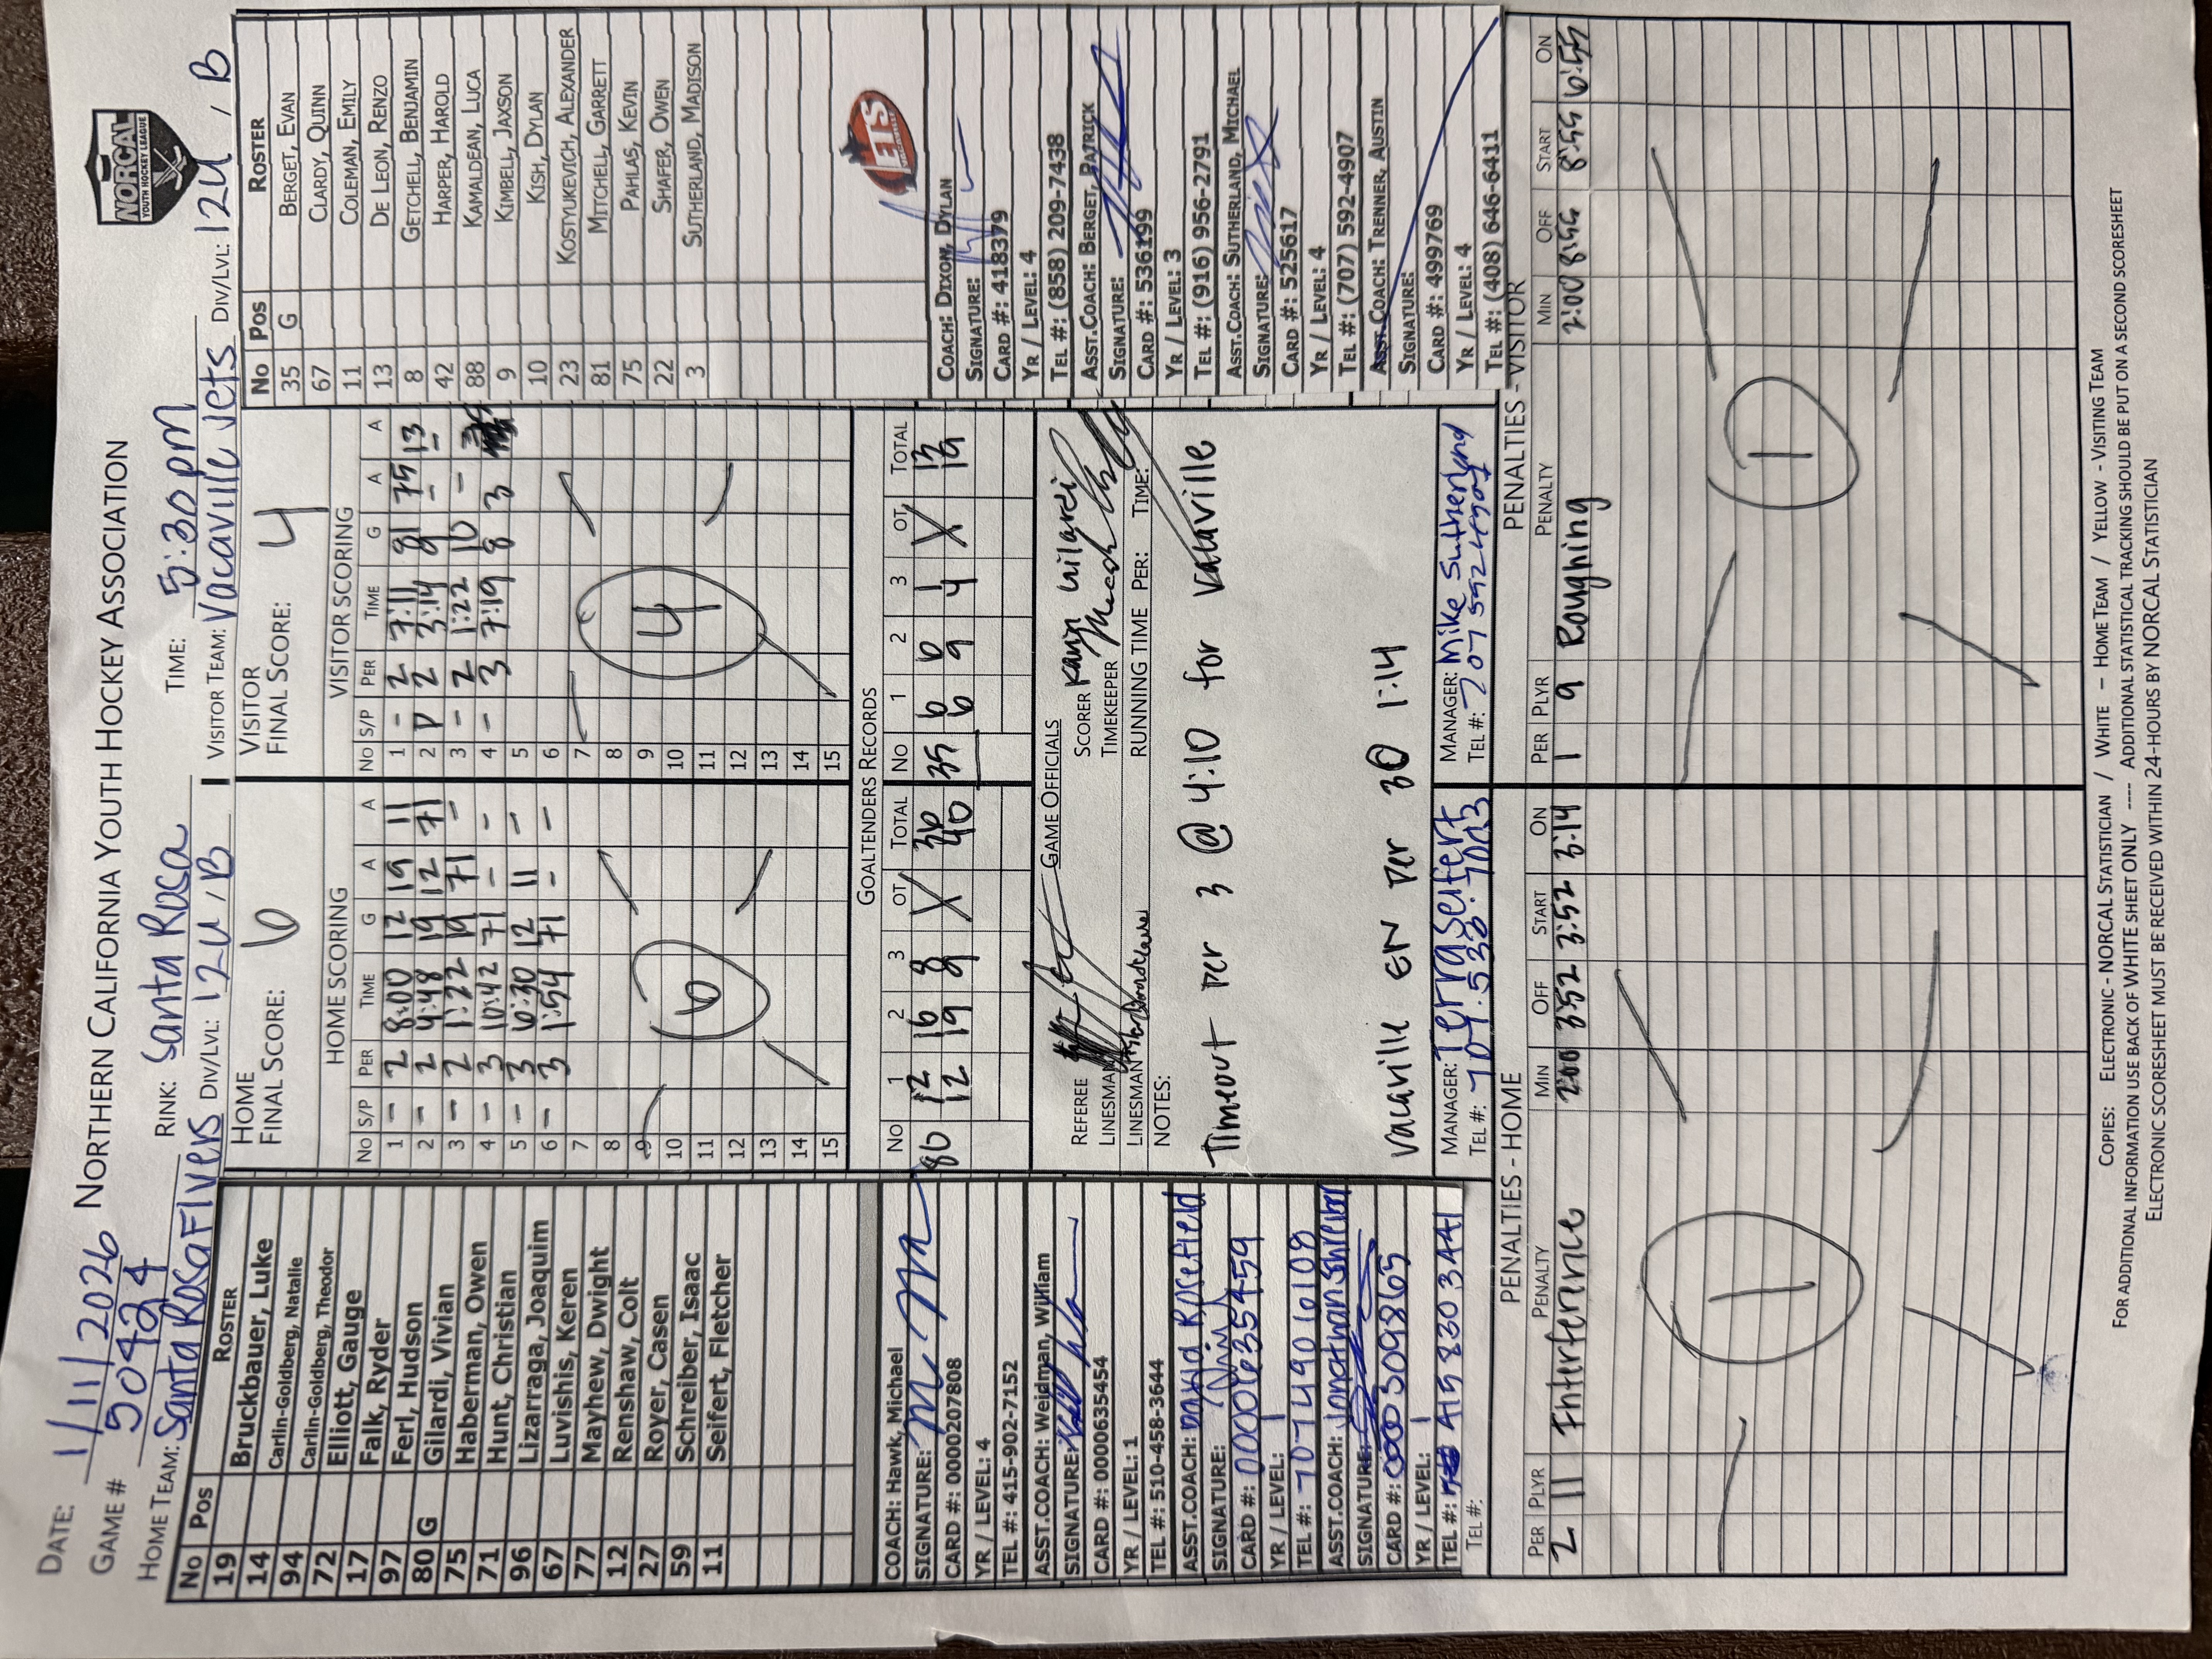 DATE: 1/11/2026 NORTHERN CALIFORNIA YOUTH HOCKEY ASSOCIATION
NORCAL
YOUTH HOCKEY LEAGUE
GAME # 50424 RINK: Santa Rosa TIME: 5:30pm
HOME TEAM: Santa Rosa Flyers DIV/LVL: 12U, B VISITOR TEAM: Vacaville Jets DIV/LVL: 12U, B
No Pos ROSTER
19 Bruckbauer, Luke
14 Carlin-Goldberg, Natalie
94 Carlin-Goldberg, Theodor
72 Elliott, Gauge
17 Falk, Ryder
97 Ferl, Hudson
80 G Gilardi, Vivian
75 Haberman, Owen
71 Hunt, Christian
96 Lizarraga, Joaquim
67 Luvishis, Keren
77 Mayhew, Dwight
12 Renshaw, Colt
27 Royer, Casen
59 Schreiber, Isaac
11 Seifert, Fletcher
COACH: Hawk, Michael
SIGNATURE:
CARD #: 0000207808
YR / LEVEL: 4
TEL #: 415-902-7152
ASST.COACH: Weidman, William
SIGNATURE:
CARD #: 0000635454
YR / LEVEL: 1
TEL #: 510-458-3644
ASST.COACH: David Rosefield
SIGNATURE:
CARD #:
YR / LEVEL: 1
TEL #: 7074906108
ASST.COACH: Jonathan Shreiber
SIGNATURE:
CARD #: 0003098665
YR / LEVEL: 1
TEL #: 415 830 3441
TEL #:
HOME
FINAL SCORE: 6
HOME SCORING
No S/P PER TIME G A A
1 - 2 8:00 12 19 11
2 - 2 4:48 19 12 71
3 - 2 1:22 19 71 -
4 - 3 10:42 71 - -
5 - 3 6:30 12 11 -
6 - 3 1:54 71 - -
7
8
9
10
11
12
13
14
15
6
VISITOR
FINAL SCORE: 4
VISITOR SCORING
No S/P PER TIME G A A
1 - 2 7:11 81 75 13
2 P 2 3:14 81 - -
3 - 2 1:22 10 -
4 - 3 7:19 8 3
5
6
7
8
9
10
11
12
13
14
15
4
GOALTENDERS RECORDS
No 1 2 3 OT TOTAL No 1 2 3 OT TOTAL
80 12 16 8 X 36 35 6 6 1 X 13
12 19 9 40 6 9 4 19
GAME OFFICIALS
REFEREE SCORER
LINESMAN TIMEKEEPER
LINESMAN RUNNING TIME PER: TIME:
NOTES:
Timeout per 3 @ 4:10 for Vacaville
Vacaville EN per 30 1:14
MANAGER: Terra Seifert MANAGER: Mike Sutherland
TEL #: 707.538.7013 TEL #: 707 592 4907
No Pos ROSTER
35 G BERGET, EVAN
67 CLARDY, QUINN
11 COLEMAN, EMILY
13 DE LEON, RENZO
8 GETCHELL, BENJAMIN
42 HARPER, HAROLD
88 KAMALDEAN, LUCA
9 KIMBELL, JAXSON
10 KISH, DYLAN
23 KOSTYUKEVICH, ALEXANDER
81 MITCHELL, GARRETT
75 PAHLAS, KEVIN
22 SHAFER, OWEN
3 SUTHERLAND, MADISON
JETS
COACH: DIXON, DYLAN
SIGNATURE:
CARD #: 418379
YR / LEVEL: 4
TEL #: (858) 209-7438
ASST.COACH: BERGET, PATRICK
SIGNATURE:
CARD #: 536199
YR / LEVEL: 3
TEL #: (916) 956-2791
ASST.COACH: SUTHERLAND, MICHAEL
SIGNATURE:
CARD #: 525617
YR / LEVEL: 4
TEL #: (707) 592-4907
ASST.COACH: TRENNER, AUSTIN
SIGNATURE:
CARD #: 499769
YR / LEVEL: 4
TEL #: (408) 646-6411
PENALTIES - HOME
PER PLYR PENALTY MIN OFF START ON
2 11 Interference 2:00 3:52 3:52 3:14
1
PENALTIES - VISITOR
PER PLYR PENALTY MIN OFF START ON
1 9 Roughing 2:00 8:55 8:55 6:55
1
COPIES: ELECTRONIC - NORCAL STATISTICIAN / WHITE – HOME TEAM / YELLOW - VISITING TEAM
FOR ADDITIONAL INFORMATION USE BACK OF WHITE SHEET ONLY ---- ADDITIONAL STATISTICAL TRACKING SHOULD BE PUT ON A SECOND SCORESHEET
ELECTRONIC SCORESHEET MUST BE RECEIVED WITHIN 24-HOURS BY NORCAL STATISTICIAN